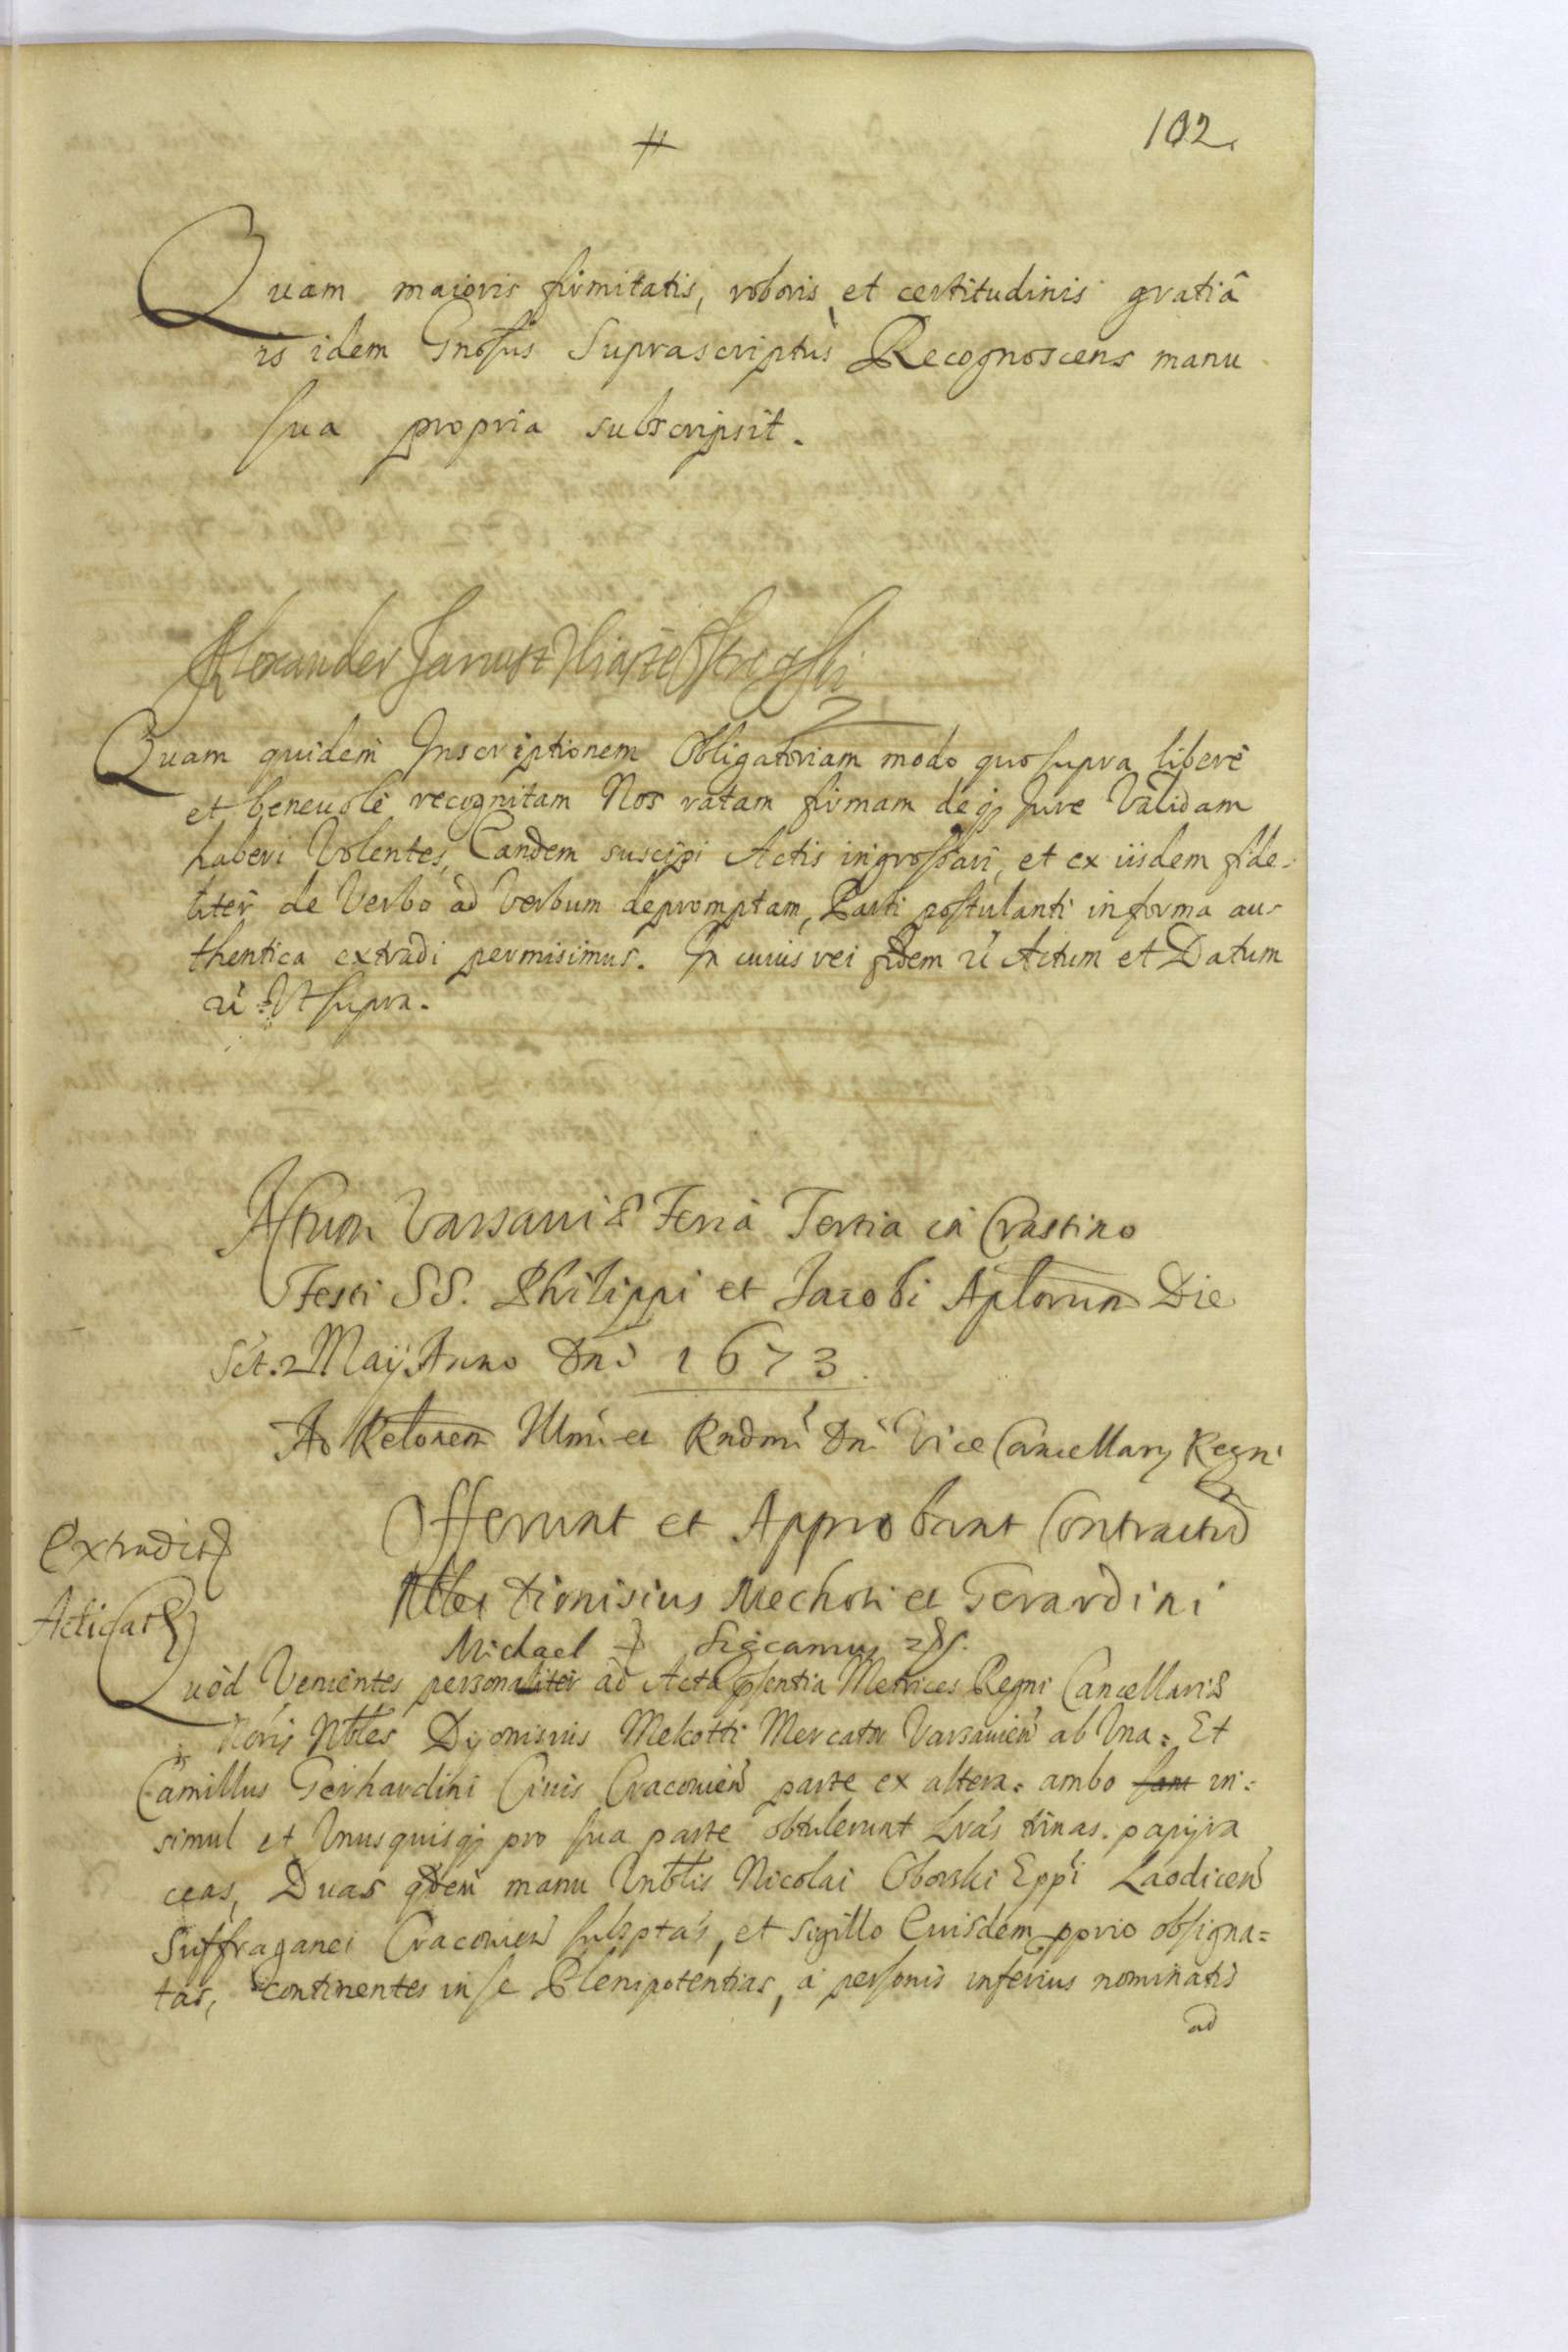 102.
Quam maioris firmitatis, roboris et certitudinis gratiâ
is idem Gnosus Suprascriptus Recognoscens manu
sua propria subscripsit.
Alexander Janusz
Quam quidem Inscriptionem Obligatoriam modo quo supra liberè
et beneuolè recognitam Nos ratam firmam deq; Jure Validam
haberi Volentes, Eandem suscipi Actis ingrossari, et ex iisdem fide-
liter de Verbo ad Verbum depromptam, Parti postulanti in forma au-
thentica extradi permisimus. In cuius rei fidem Actum et Datum
Ut supra.
Actum Varsauiæ Feria Tertia in Crastino
Festi SS. Philippi et Jacobi Aplorum Die
Sct. 2 Maij Anno Dni 1673
Ad Relonem Illmi et Rndmi Dni Vice Cancellarij Regni
Offerunt et Approbant Contractu
Extradit
Nbles Dionisius Mechoti et Gerardini
Acticat
Michael
Quod Venientes personaliter ad Acta psentia Metrices Regni Cancellariæ
Noris Nbles Dyonisius Mekotti Mercator Varsauien ab Una = Et
Camillus Gerhardini Ciuis Cracouien parte ex altera = ambo in=
simul et Unusquisq; pro sua parte obtulerunt Lras trinas papijra
ceas, Duas qdem manu Nicolai Oborski Eppi Laodicen
Suffraganei Cracouien subsptas, et sigillo Euisdem pprio obsigna=
tas, continentes in se Plenipotentias, à personis inferius nominatis
ad